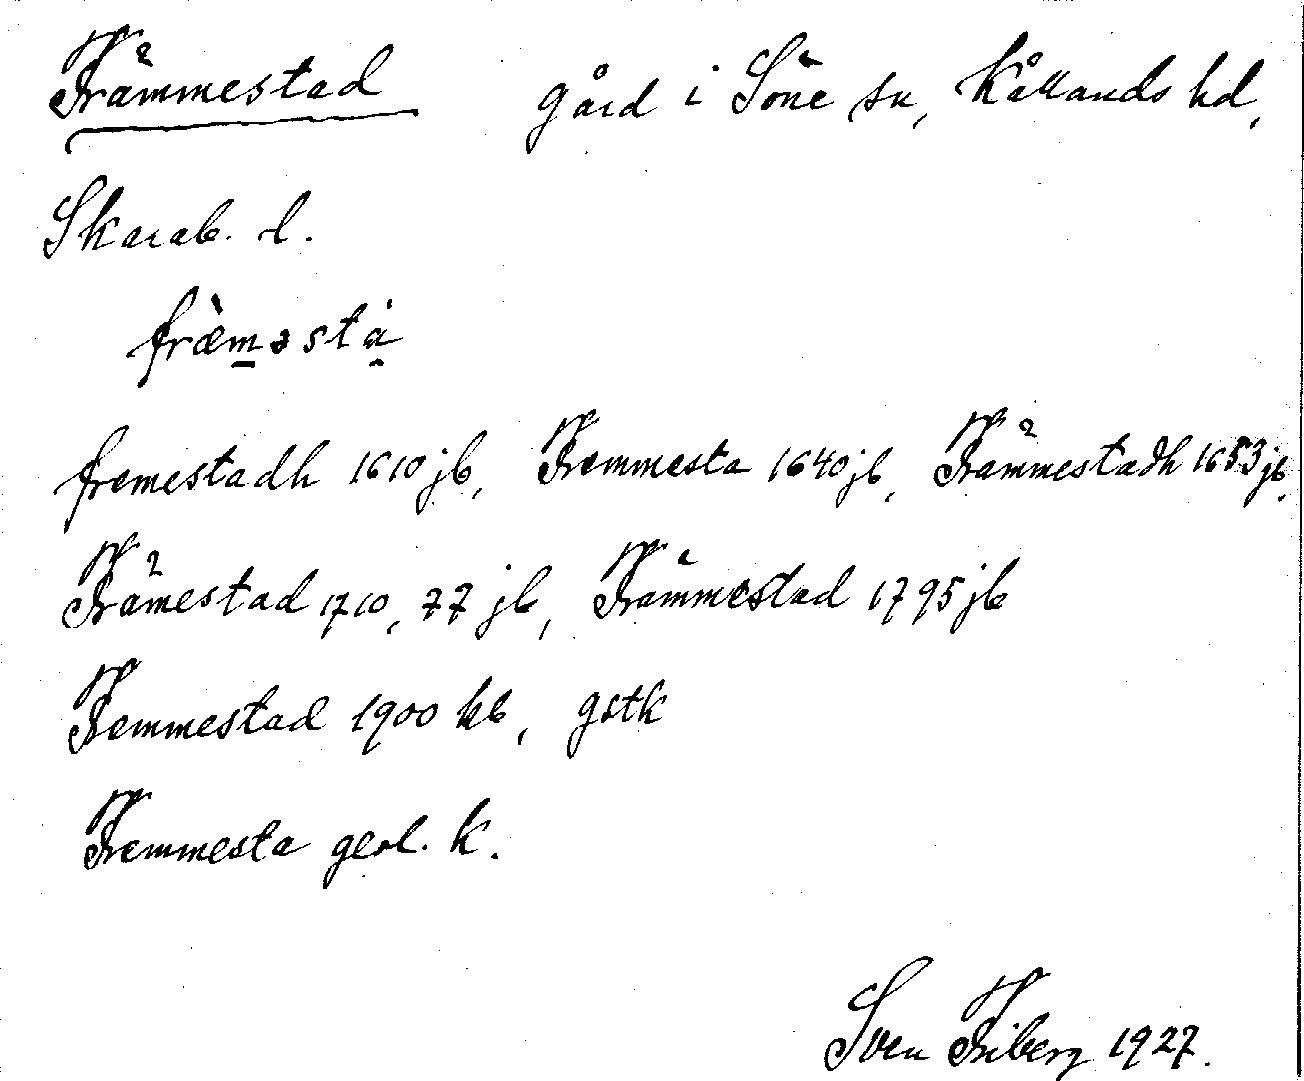 Främmestad gård i Söne sn, Kållands hd,
Skarab. l.
fræ̀məstà
fremestadh 1610 jb, Fremmesta 1640 jb, Främmestadh 1653 jb,
Främestad 1710, 77 jb, Främmestad 1795 jb
Fremmestad 1900 kb, gstk
Fremmesta geol. k.
Sven Friberg 1927.